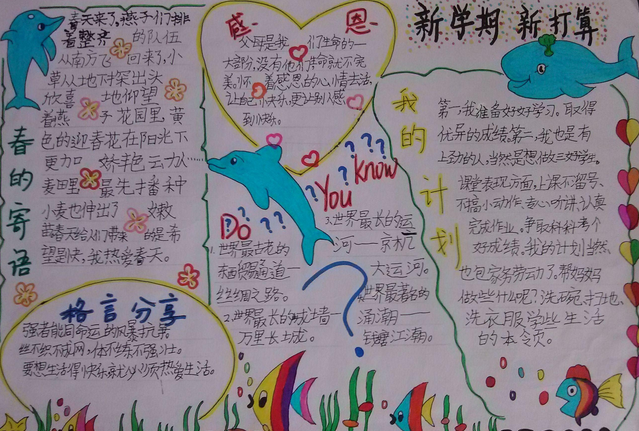 春的寄语
春天来了,燕子们排
着整齐 的队伍
从南方飞 回来了,小
草从地下探出头
放喜 地仰望
着燕 子花园里,黄
色的迎春花在阳光下
更加 娇丰色云力人……
麦田里 最先播种
小麦也伸出了 嫩
春天给人们带来 的是希
望是快,我热爱春天。
格言分享
强者能同命运的风暴抗累
丝不织不成网,体不练不强壮。
要想生活得快乐就必须热爱生活。
感恩
父母是我 们生命的一
大部分,没有他们生命就不完
美。怀 着感恩的心情去活,
让自己小快乐,更让别人感
到快乐。
Do You Know
1.世界最古老的
贸易通道一
丝绸之路。
2.世界最长的城墙一
万里长城。
3.世界最长的运
河——京杭
大运河。
世界最著名的
涌潮——
钱塘江潮。
新学期 新打算
我的计划
第一,我准备好好学习。取得
优异的成绩。第二,我也是有
上劲的人,当然是想做三好学生。
课堂表现方面,上课不留号、
不搞小动作。专心听讲,认真
完成作业。争取科科考个
好成绩。我的计划当然
也包家务劳动了。帮妈妈
做些什么呢?洗碗,扫地、
洗衣服学些生活
的本领。